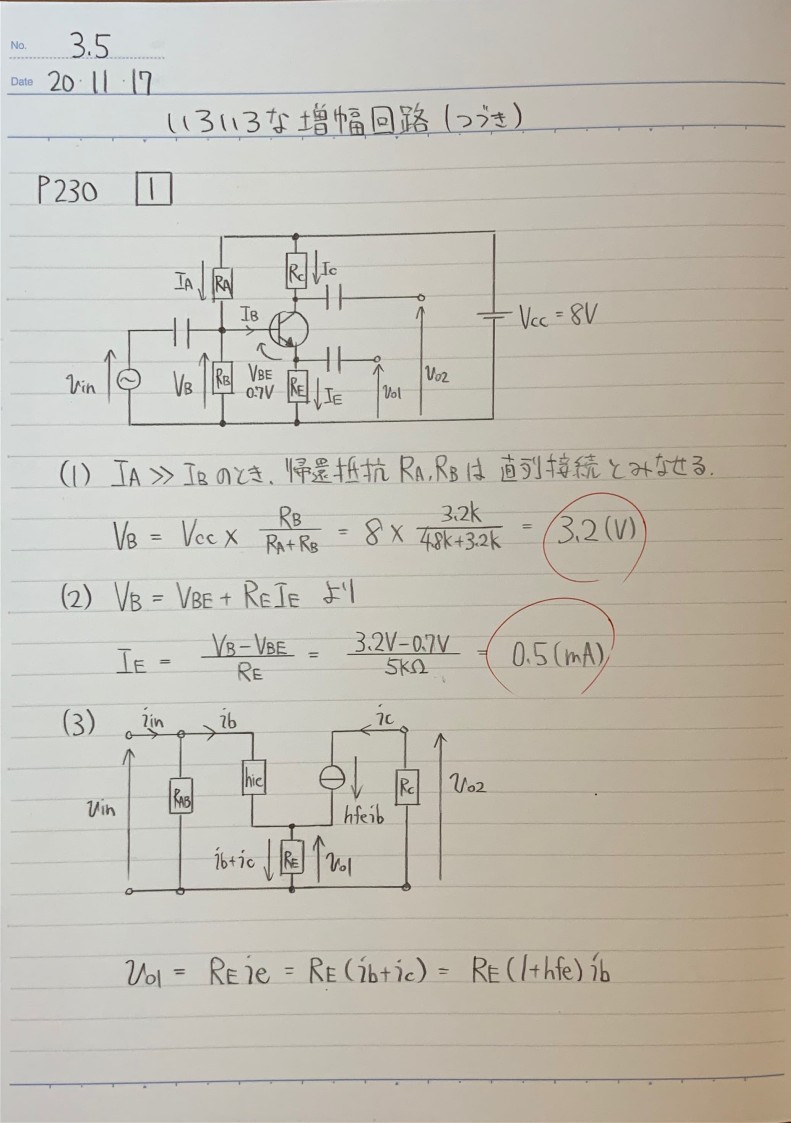 No. 3.5
Date 20・11・17
いろいろな増幅回路(つづき)
P230 1
IA RA RC IC
IB
VCC = 8V
vin VB RB VBE 0.7V RE IE vo1 vo2
(1) IA ≫ IB のとき、帰還抵抗 RA, RBは 直列接続とみなせる.
VB = VCC × RB/(RA+RB) = 8 × 3.2k/(4.8k+3.2k) = 3.2(V)
(2) VB = VBE + REIE より
IE = (VB-VBE)/RE = (3.2V-0.7V)/5kΩ = 0.5(mA)
(3) iin ib ic
vin RAB hie hfeib RC vo2
ib+ic RE vo1
vo1 = REie = RE(ib+ic) = RE(1+hfe)ib